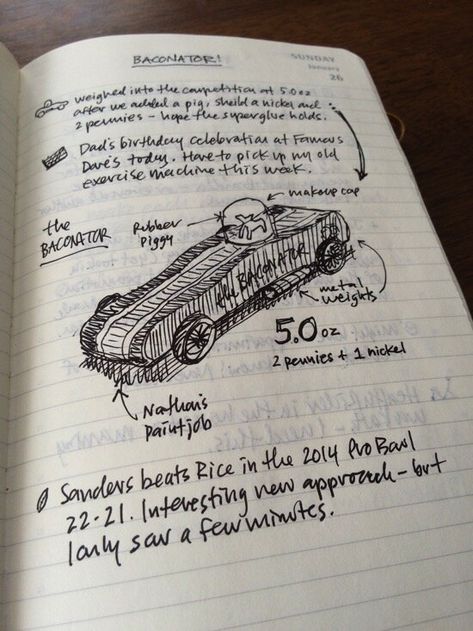 BACONATOR!
SUNDAY
January
26
weighed into the competition at 5.0 oz
after we added a pig, sheild a nickel and
2 pennies - hope the superglue holds.
Dad's birthday celebration at Famous
Dave's today. Have to pick up my old
exercise machine this week.
makeup cap
the
BACONATOR
Rubber
piggy
the BACONATOR
metal
weights
5.0 oz
2 pennies + 1 nickel
Nathan's
paintjob
Sanders beats Rice in the 2014 Pro Bowl
22-21. Interesting new approach - but
I only saw a few minutes.